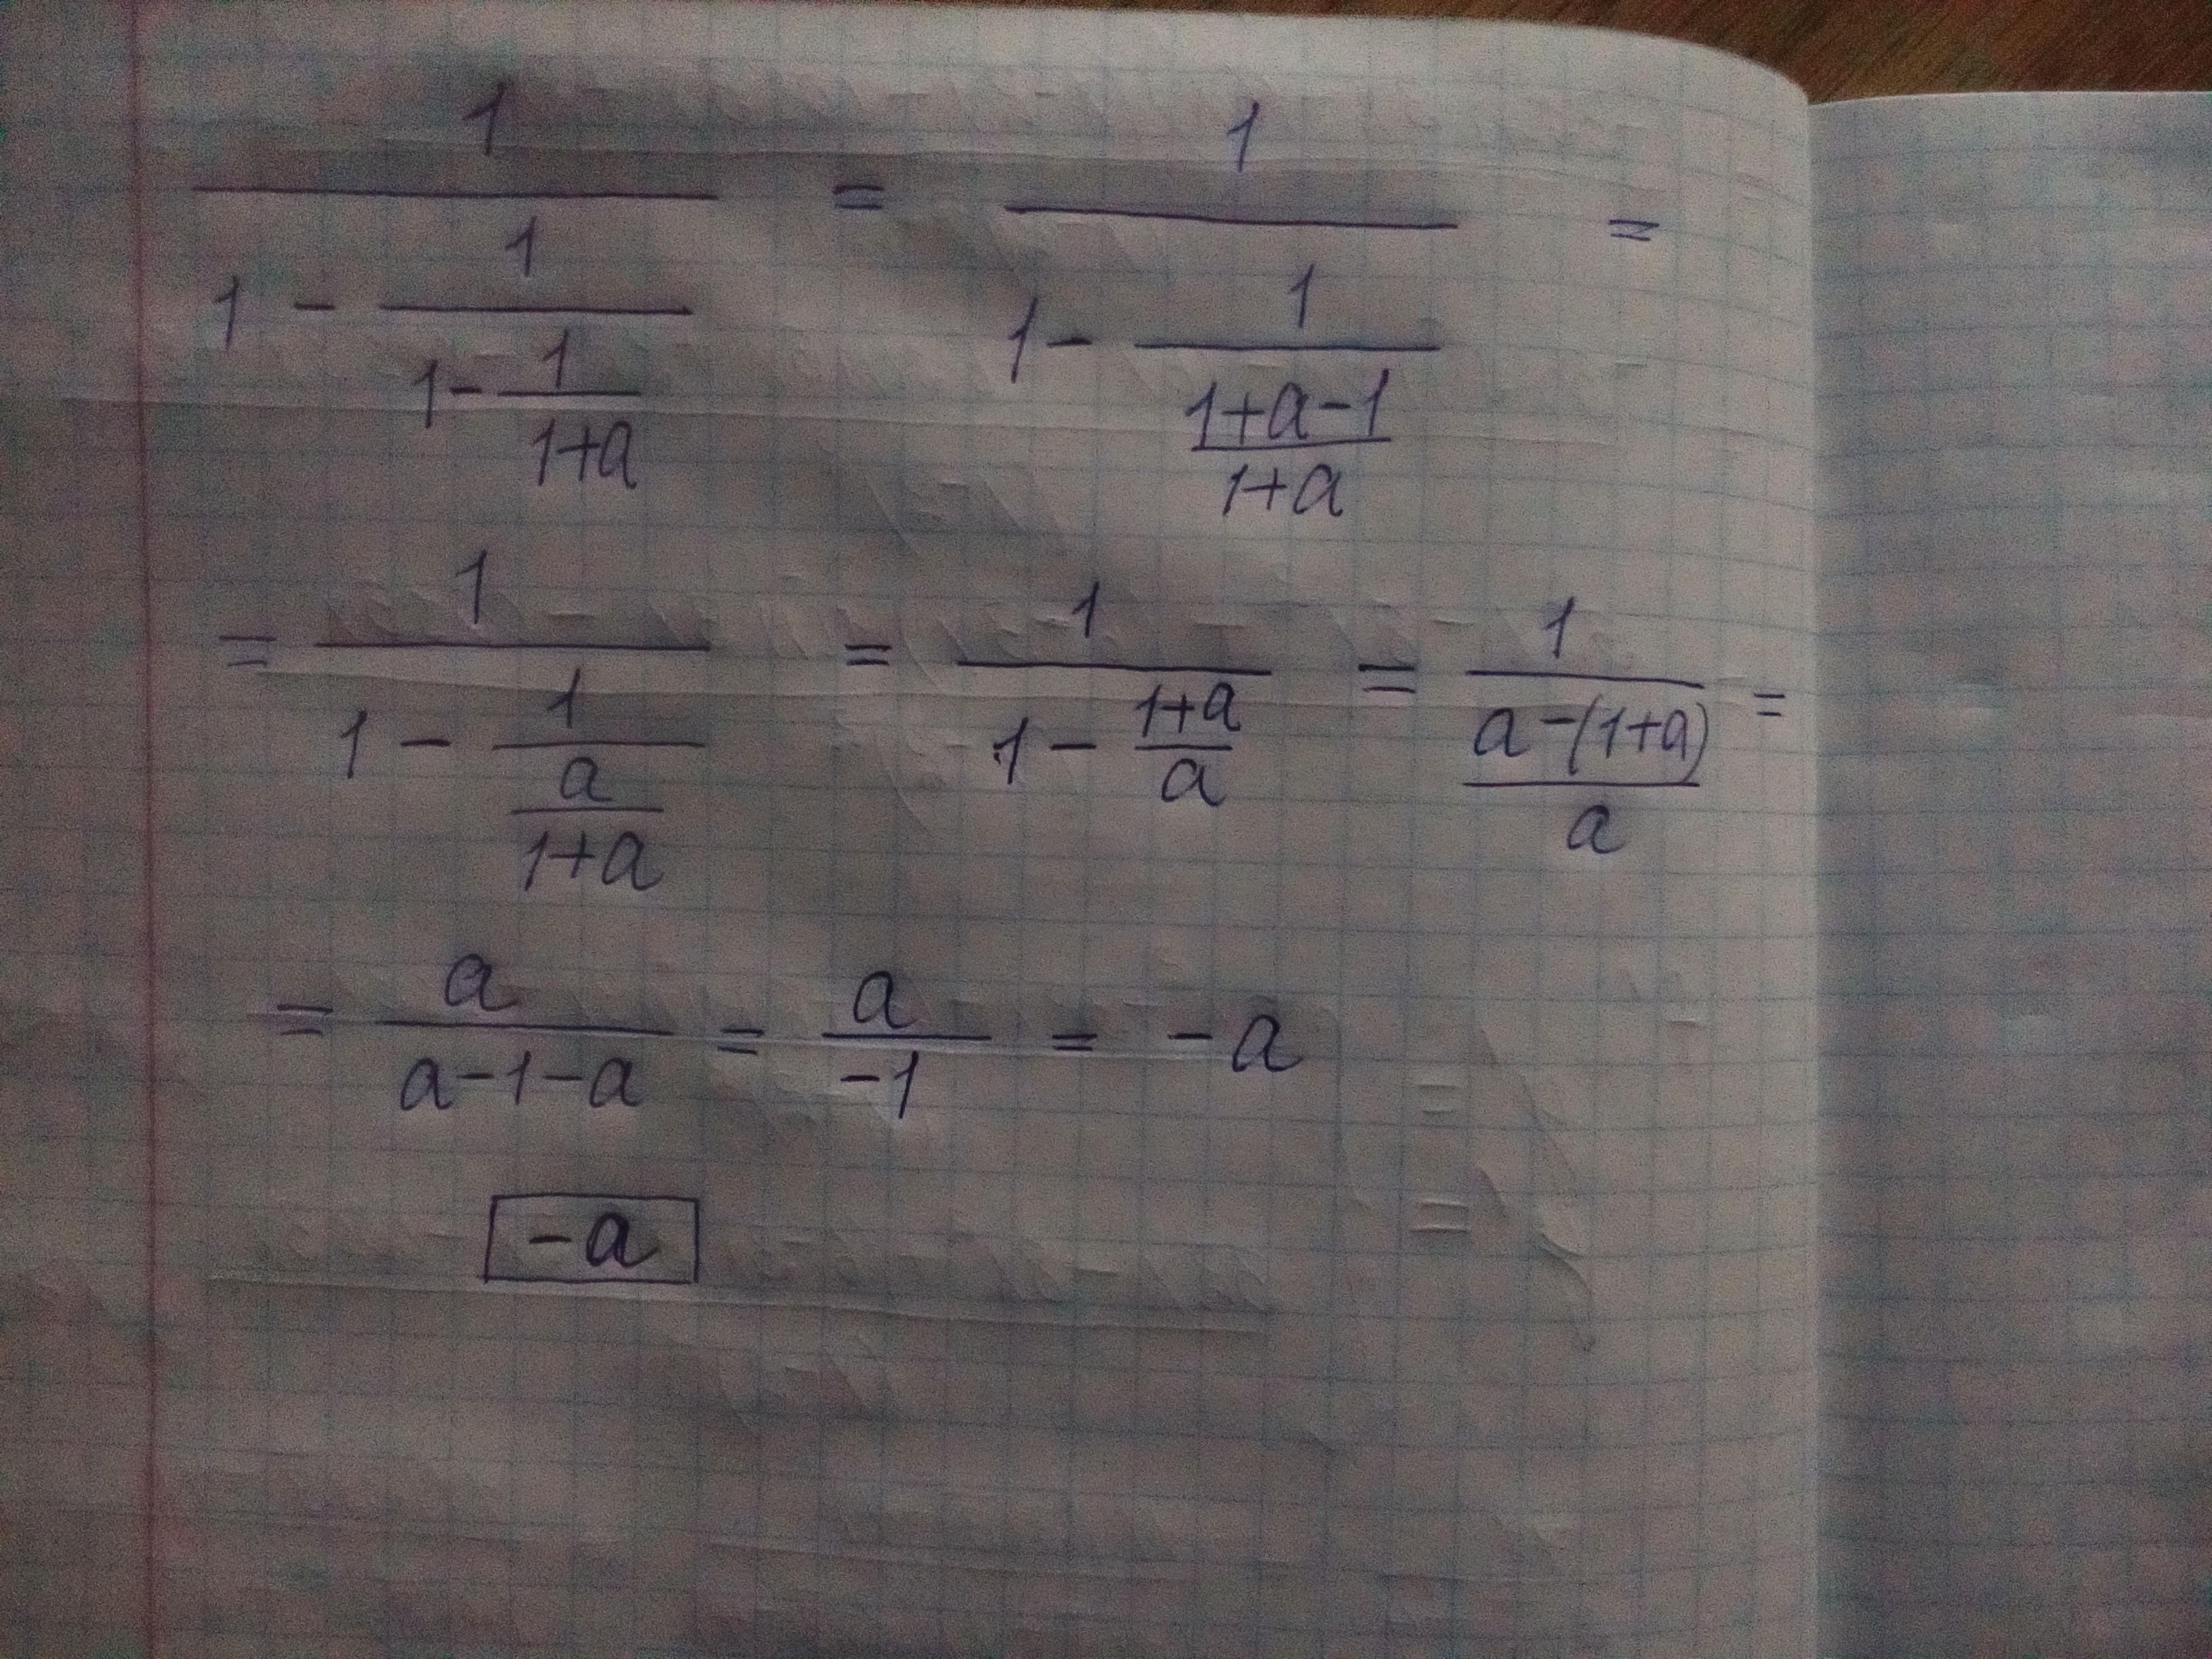 1/(1 - 1/(1 - 1/(1+a))) = 1/(1 - 1/((1+a-1)/(1+a))) =
= 1/(1 - 1/(a/(1+a))) = 1/(1 - (1+a)/a) = 1/((a-(1+a))/a) =
= a/(a-1-a) = a/(-1) = -a
-a